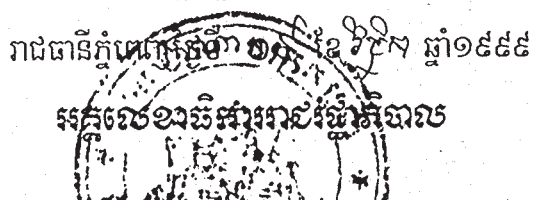 រាជធានីភ្នំពេញ ថ្ងៃទី ខែ វិច្ឆិកា ឆ្នាំ១៩៩៩
អគ្គលេខាធិការរាជរដ្ឋាភិបាល